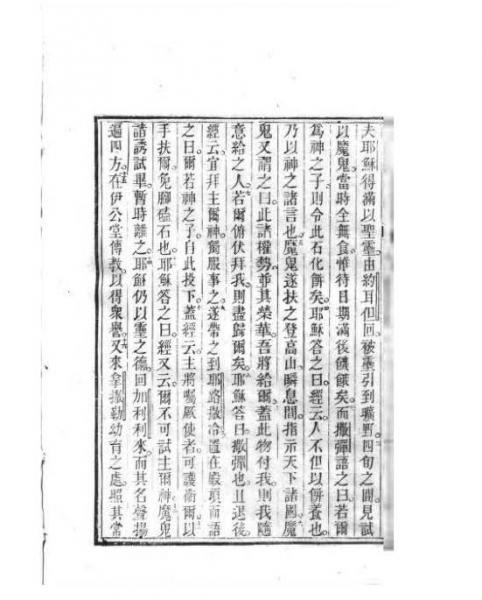 夫耶穌得滿以聖靈由約耳但回被靈引到曠野四旬之間見試
以魔鬼當時全無食惟待日期滿後饑餓矣而撒彈語之曰若爾
為神之子則令此石化餅矣耶穌答之曰經云人不但以餅養也
乃以神之諸言也魔鬼遂扶之登高山瞬息間指示天下諸國魔
鬼又謂之曰此諸權勢並其榮華吾將給爾蓋此物付我則我隨
意給之人若爾俯伏拜我則盡歸爾矣耶穌答曰撒彈也且退後
經云宜拜主爾神獨服事之遂帶之到耶路撒冷置在殿項而語
之曰爾若神之子自此投下蓋經云主將囑厥使者可護衛爾以
手扶爾免腳磕石也耶穌答之曰經又云爾不可試主爾神魔鬼
諸誘試畢暫時離之耶穌仍以靈之德回加利利來而其名聲揚
遍四方在伊公堂傳教以得眾譽又來拿撒勒幼育之處照其常